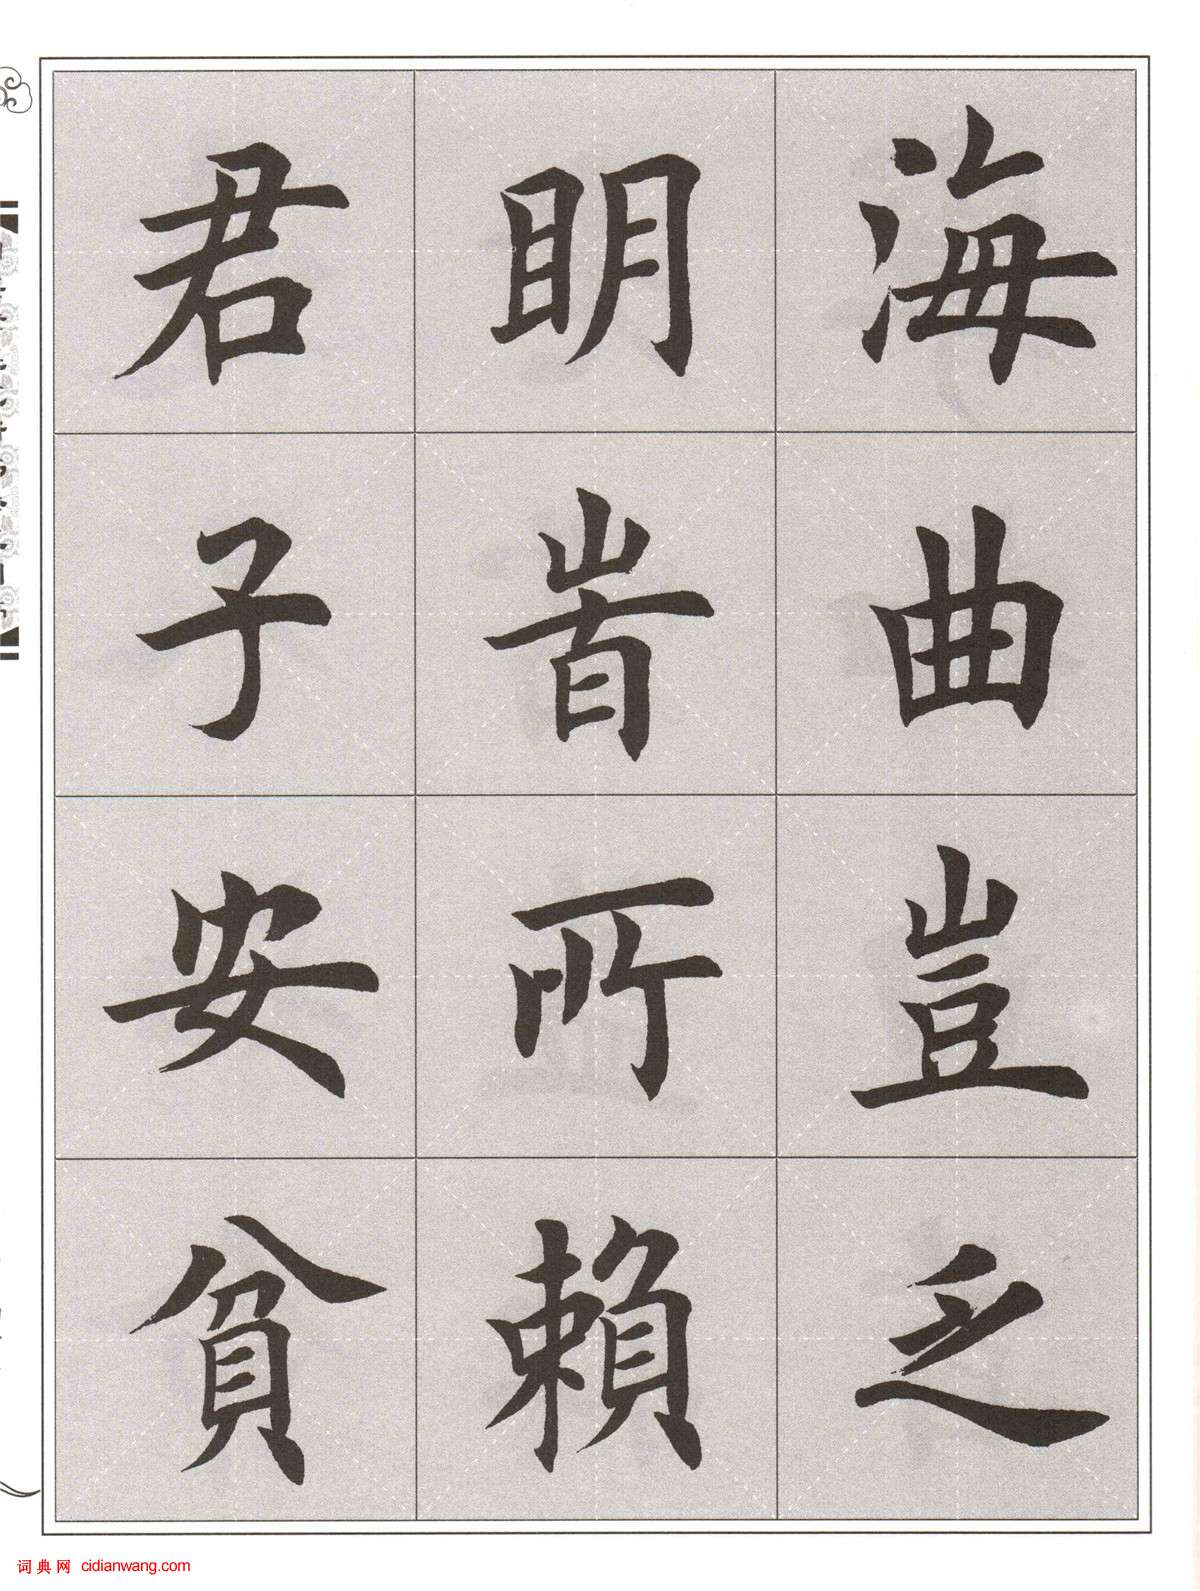 海曲豈乏
眀旹所賴
君子安貧
词典网 cidianwang.com